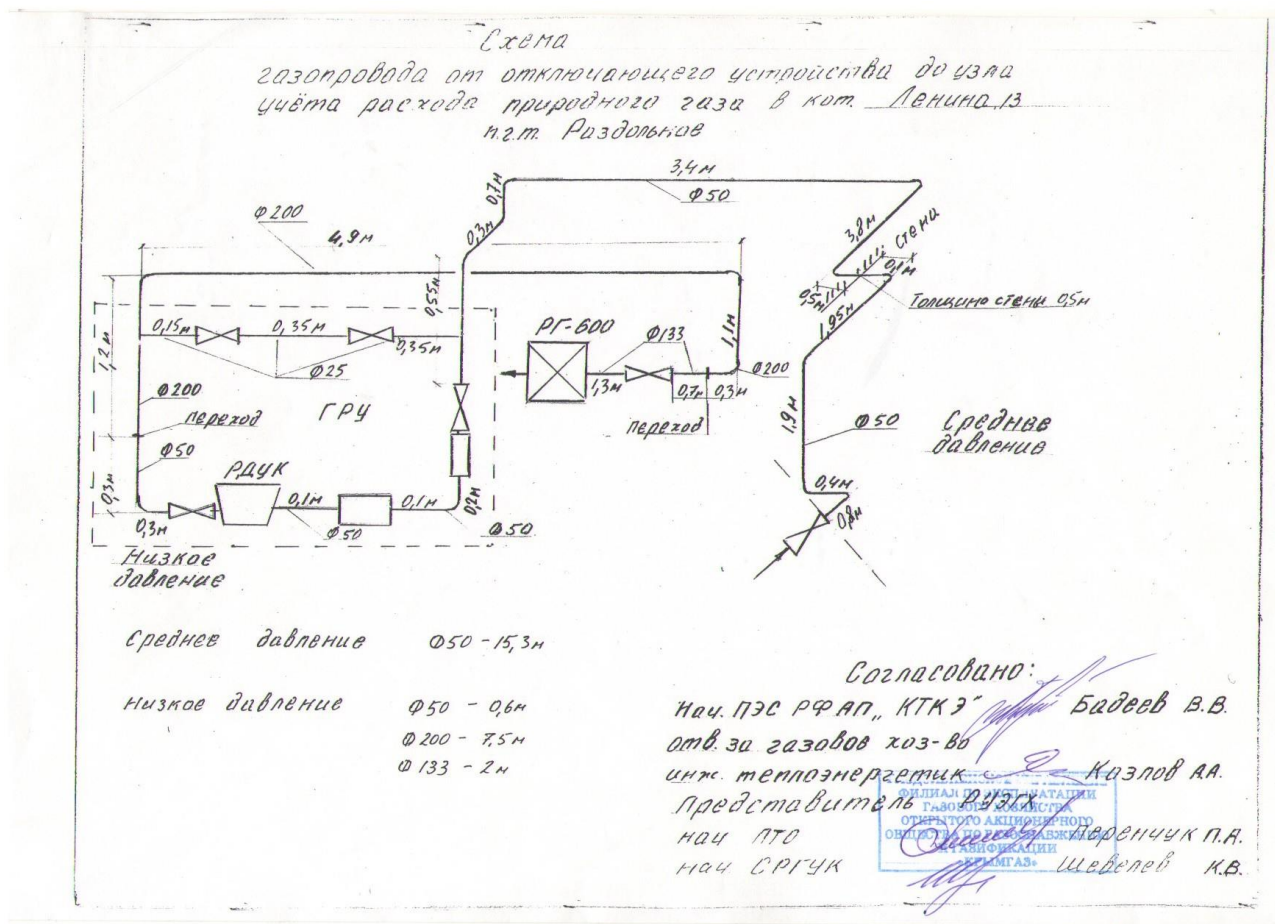 Схема
газопровода от отключающего устройства до узла
учёта расхода природного газа в кот. Ленина, 13
п.г.т. Раздольное
3,4м
Ф50
0,7м
0,3м
Ф200
4,9м
3,8м
стена
0,1м
0,5м
Толщина стены 0,5м
1,95м
0,55м
0,15м
0,35м
0,35м
Ф25
1,2м
РГ-600
Ф133
1,1м
Ф200
1,3м
0,7м
0,3м
переход
Ф200
ГРУ
переход
Ф50
1,9м
Ф50
Среднее
давление
РДУК
0,3м
0,3м
0,1м
Ф50
0,1м
0,2м
Ф50
0,4м
0,8м
Низкое
давление
Среднее давление Ф50 - 15,3м
Низкое давление Ф50 - 0,6м
Ф200 - 7.5м
Ф133 - 2м
Согласовано:
Нач. ПЭС РФ АП „КТКЭ" Бадеев В.В.
отв. за газовое хоз-во
инж. теплоэнергетик Козлов А.А.
Представитель РУЭГХ
нач ПТО Перенчук П.А.
нач СРГУК Шевелев К.В.
ФИЛИАЛ ПО ЭКСПЛУАТАЦИИ
ГАЗОВОГО ХОЗЯЙСТВА
ОТКРЫТОГО АКЦИОНЕРНОГО
ОБЩЕСТВА ПО ГАЗОСНАБЖЕНИЮ
И ГАЗИФИКАЦИИ
«КРЫМГАЗ»